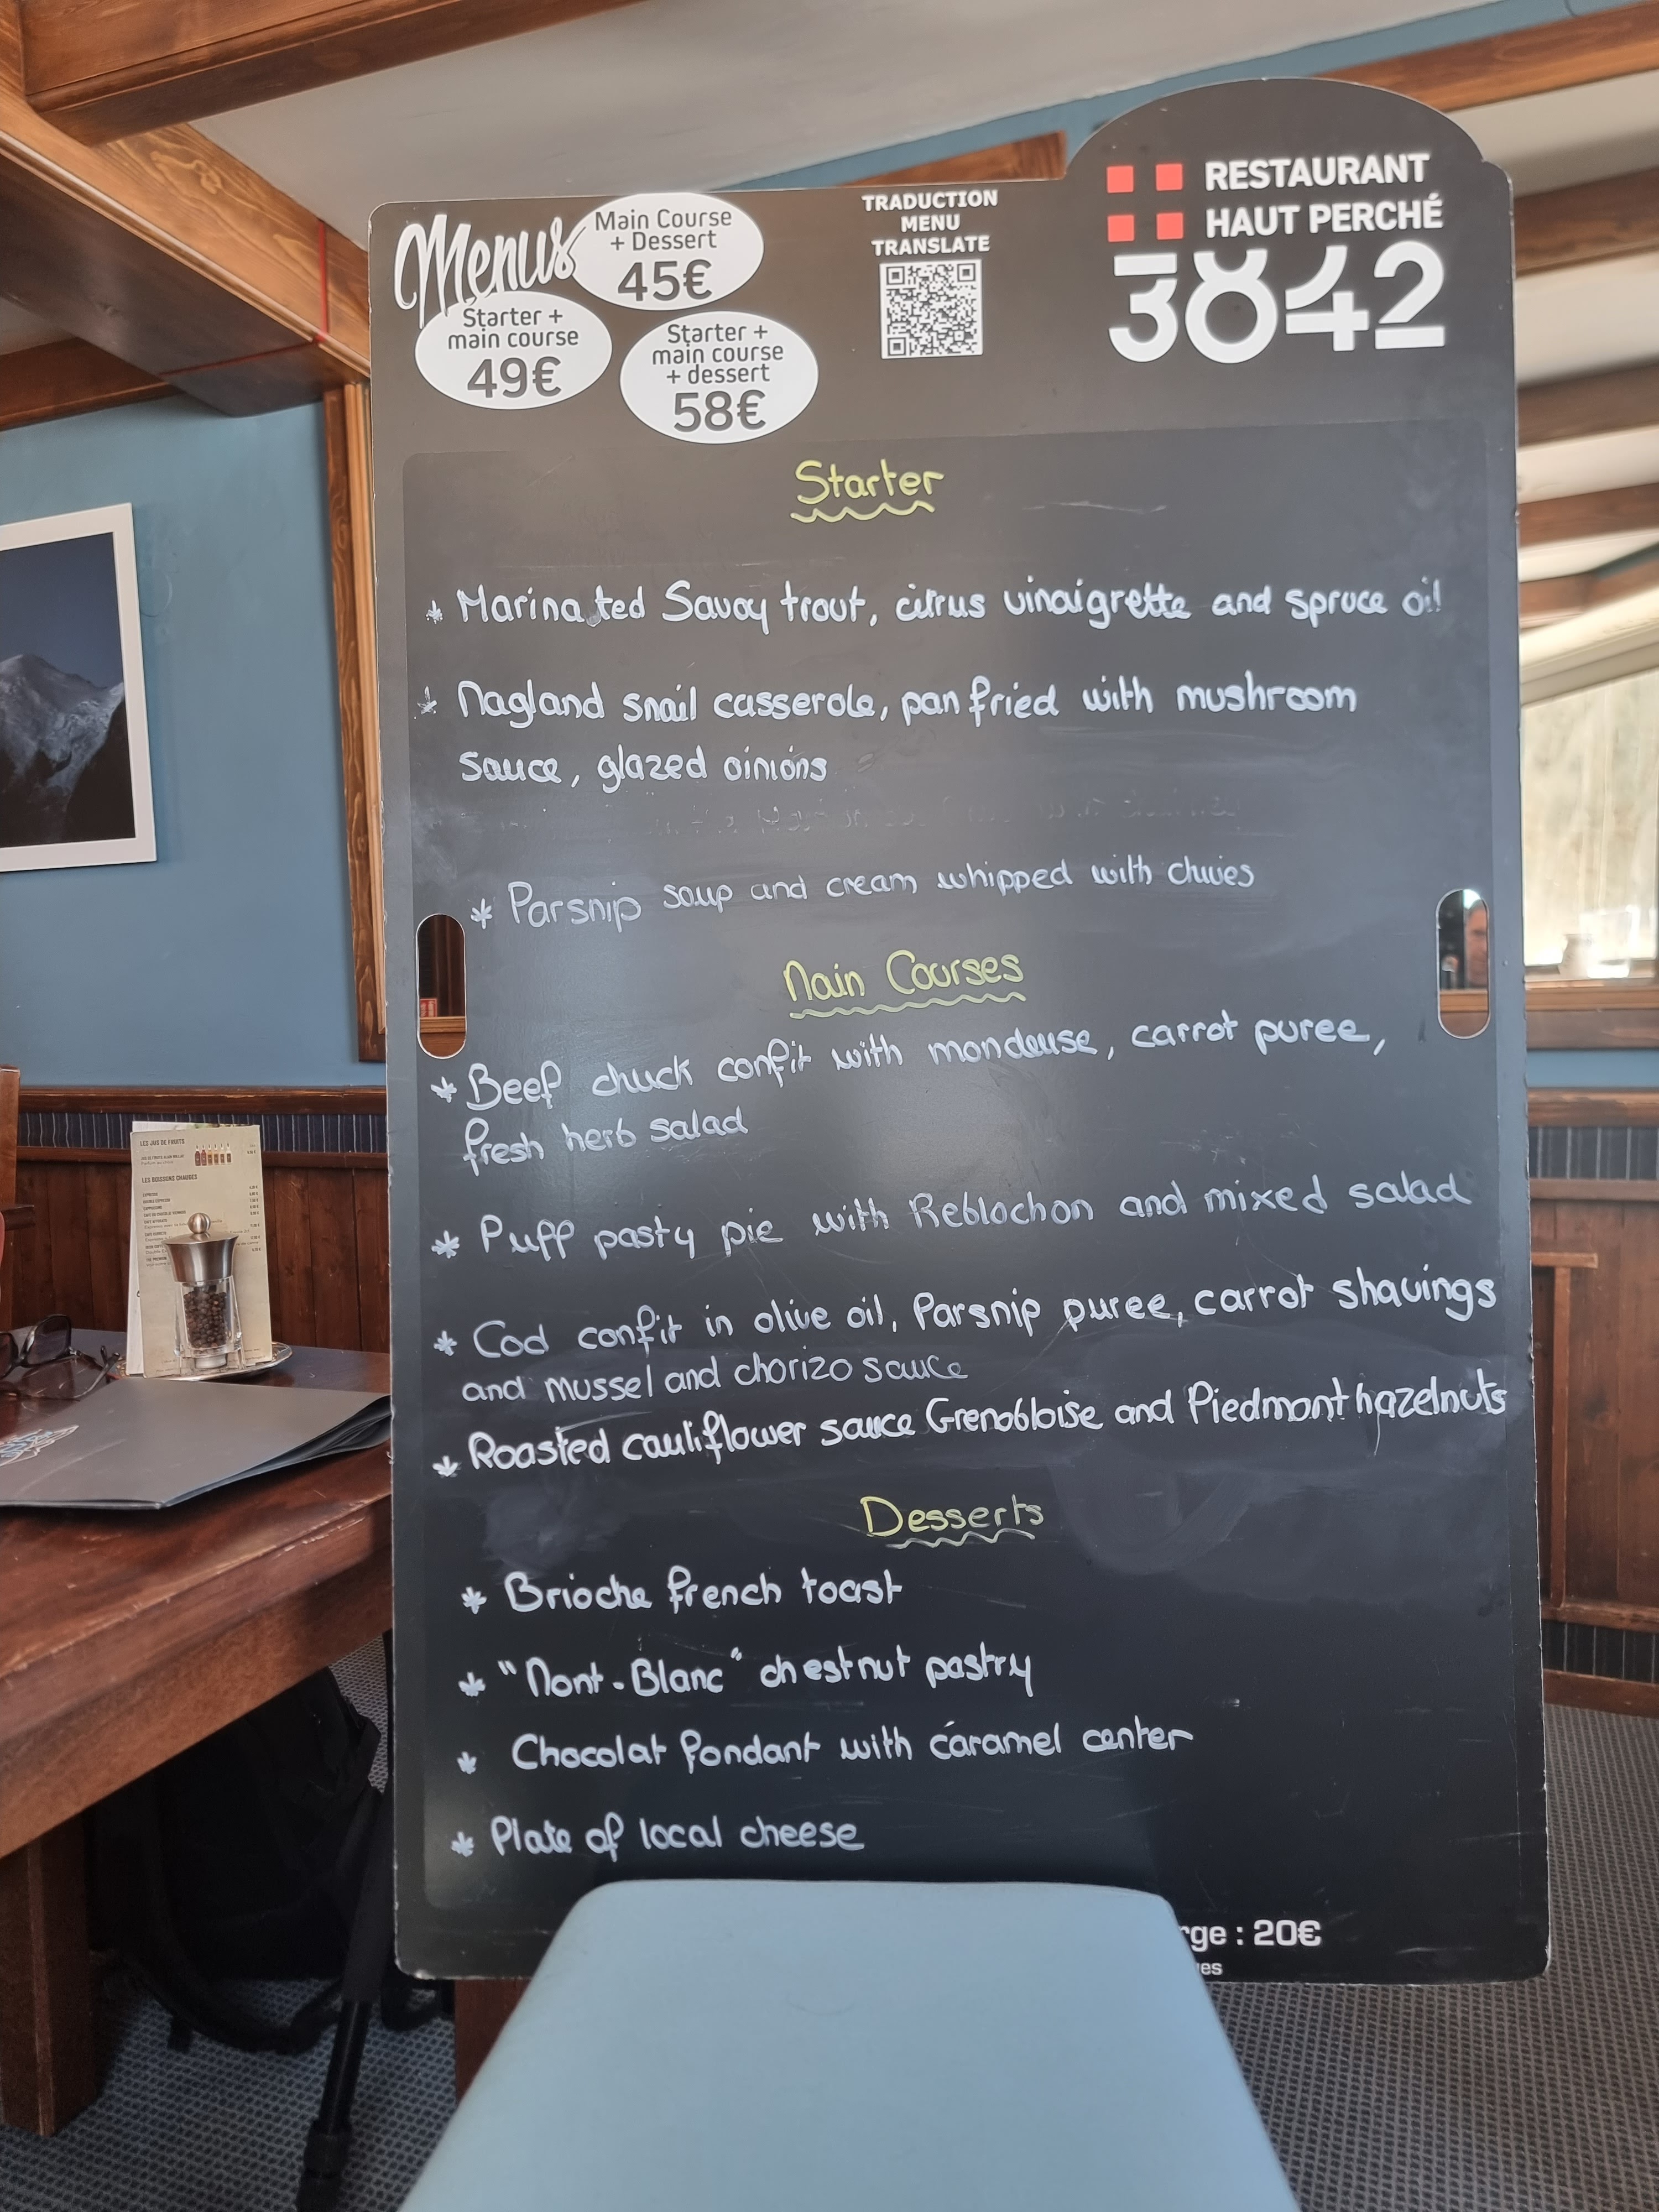 Menus
Main Course
+ Dessert
45€
Starter +
main course
49€
Starter +
main course
+ dessert
58€
TRADUCTION
MENU
TRANSLATE
RESTAURANT
HAUT PERCHÉ
3842
Starter
* Marinated Savoy trout, citrus vinaigrette and spruce oil
* Magland snail casserole, pan fried with mushroom
sauce, glazed oinions
* Parsnip soup and cream whipped with chives
Main Courses
* Beef chuck confit with mondeuse, carrot puree,
fresh herb salad
* Puff pasty pie with Reblochon and mixed salad
* Cod confit in olive oil, Parsnip puree, carrot shavings
and mussel and chorizo sauce
* Roasted cauliflower sauce Grenobloise and Piedmont hazelnuts
Desserts
* Brioche french toast
* "Mont-Blanc" chestnut pastry
* Chocolat fondant with caramel center
* Plate of local cheese
: 20€
LES JUS DE FRUITS
LES BOISSONS CHAUDES